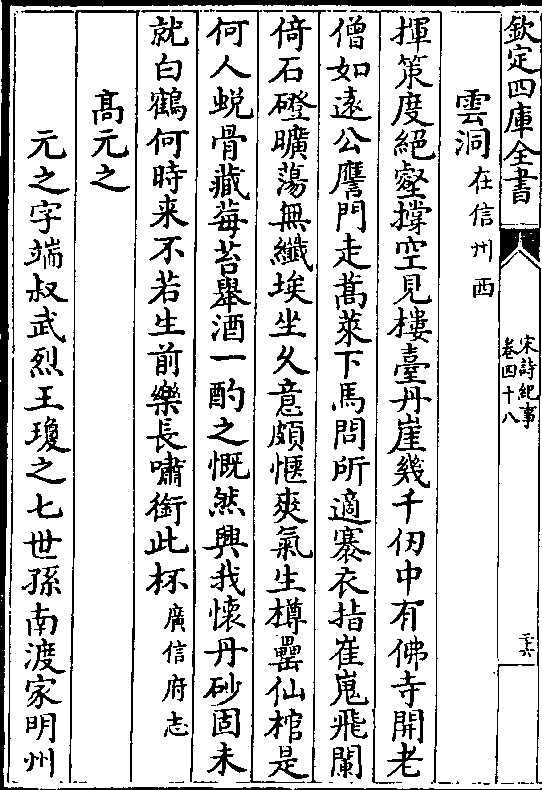 欽定四庫全書
宋詩紀事
卷四十八
二十六
雲洞在信州西
揮策度絕壑撐空見樓臺丹崖幾千仞中有佛寺開老
僧如遠公譍門走蒿萊下馬問所適褰衣指崔嵬飛闌
倚石磴曠蕩無纖埃坐久意頗愜爽氣生樽罍仙棺是
何人蜕骨藏莓苔舉酒一酌之慨然興我懷丹砂固未
就白鶴何時来不若生前樂長嘯銜此杯廣信府志
髙元之
元之字端叔武烈王瓊之七世孫南渡家明州